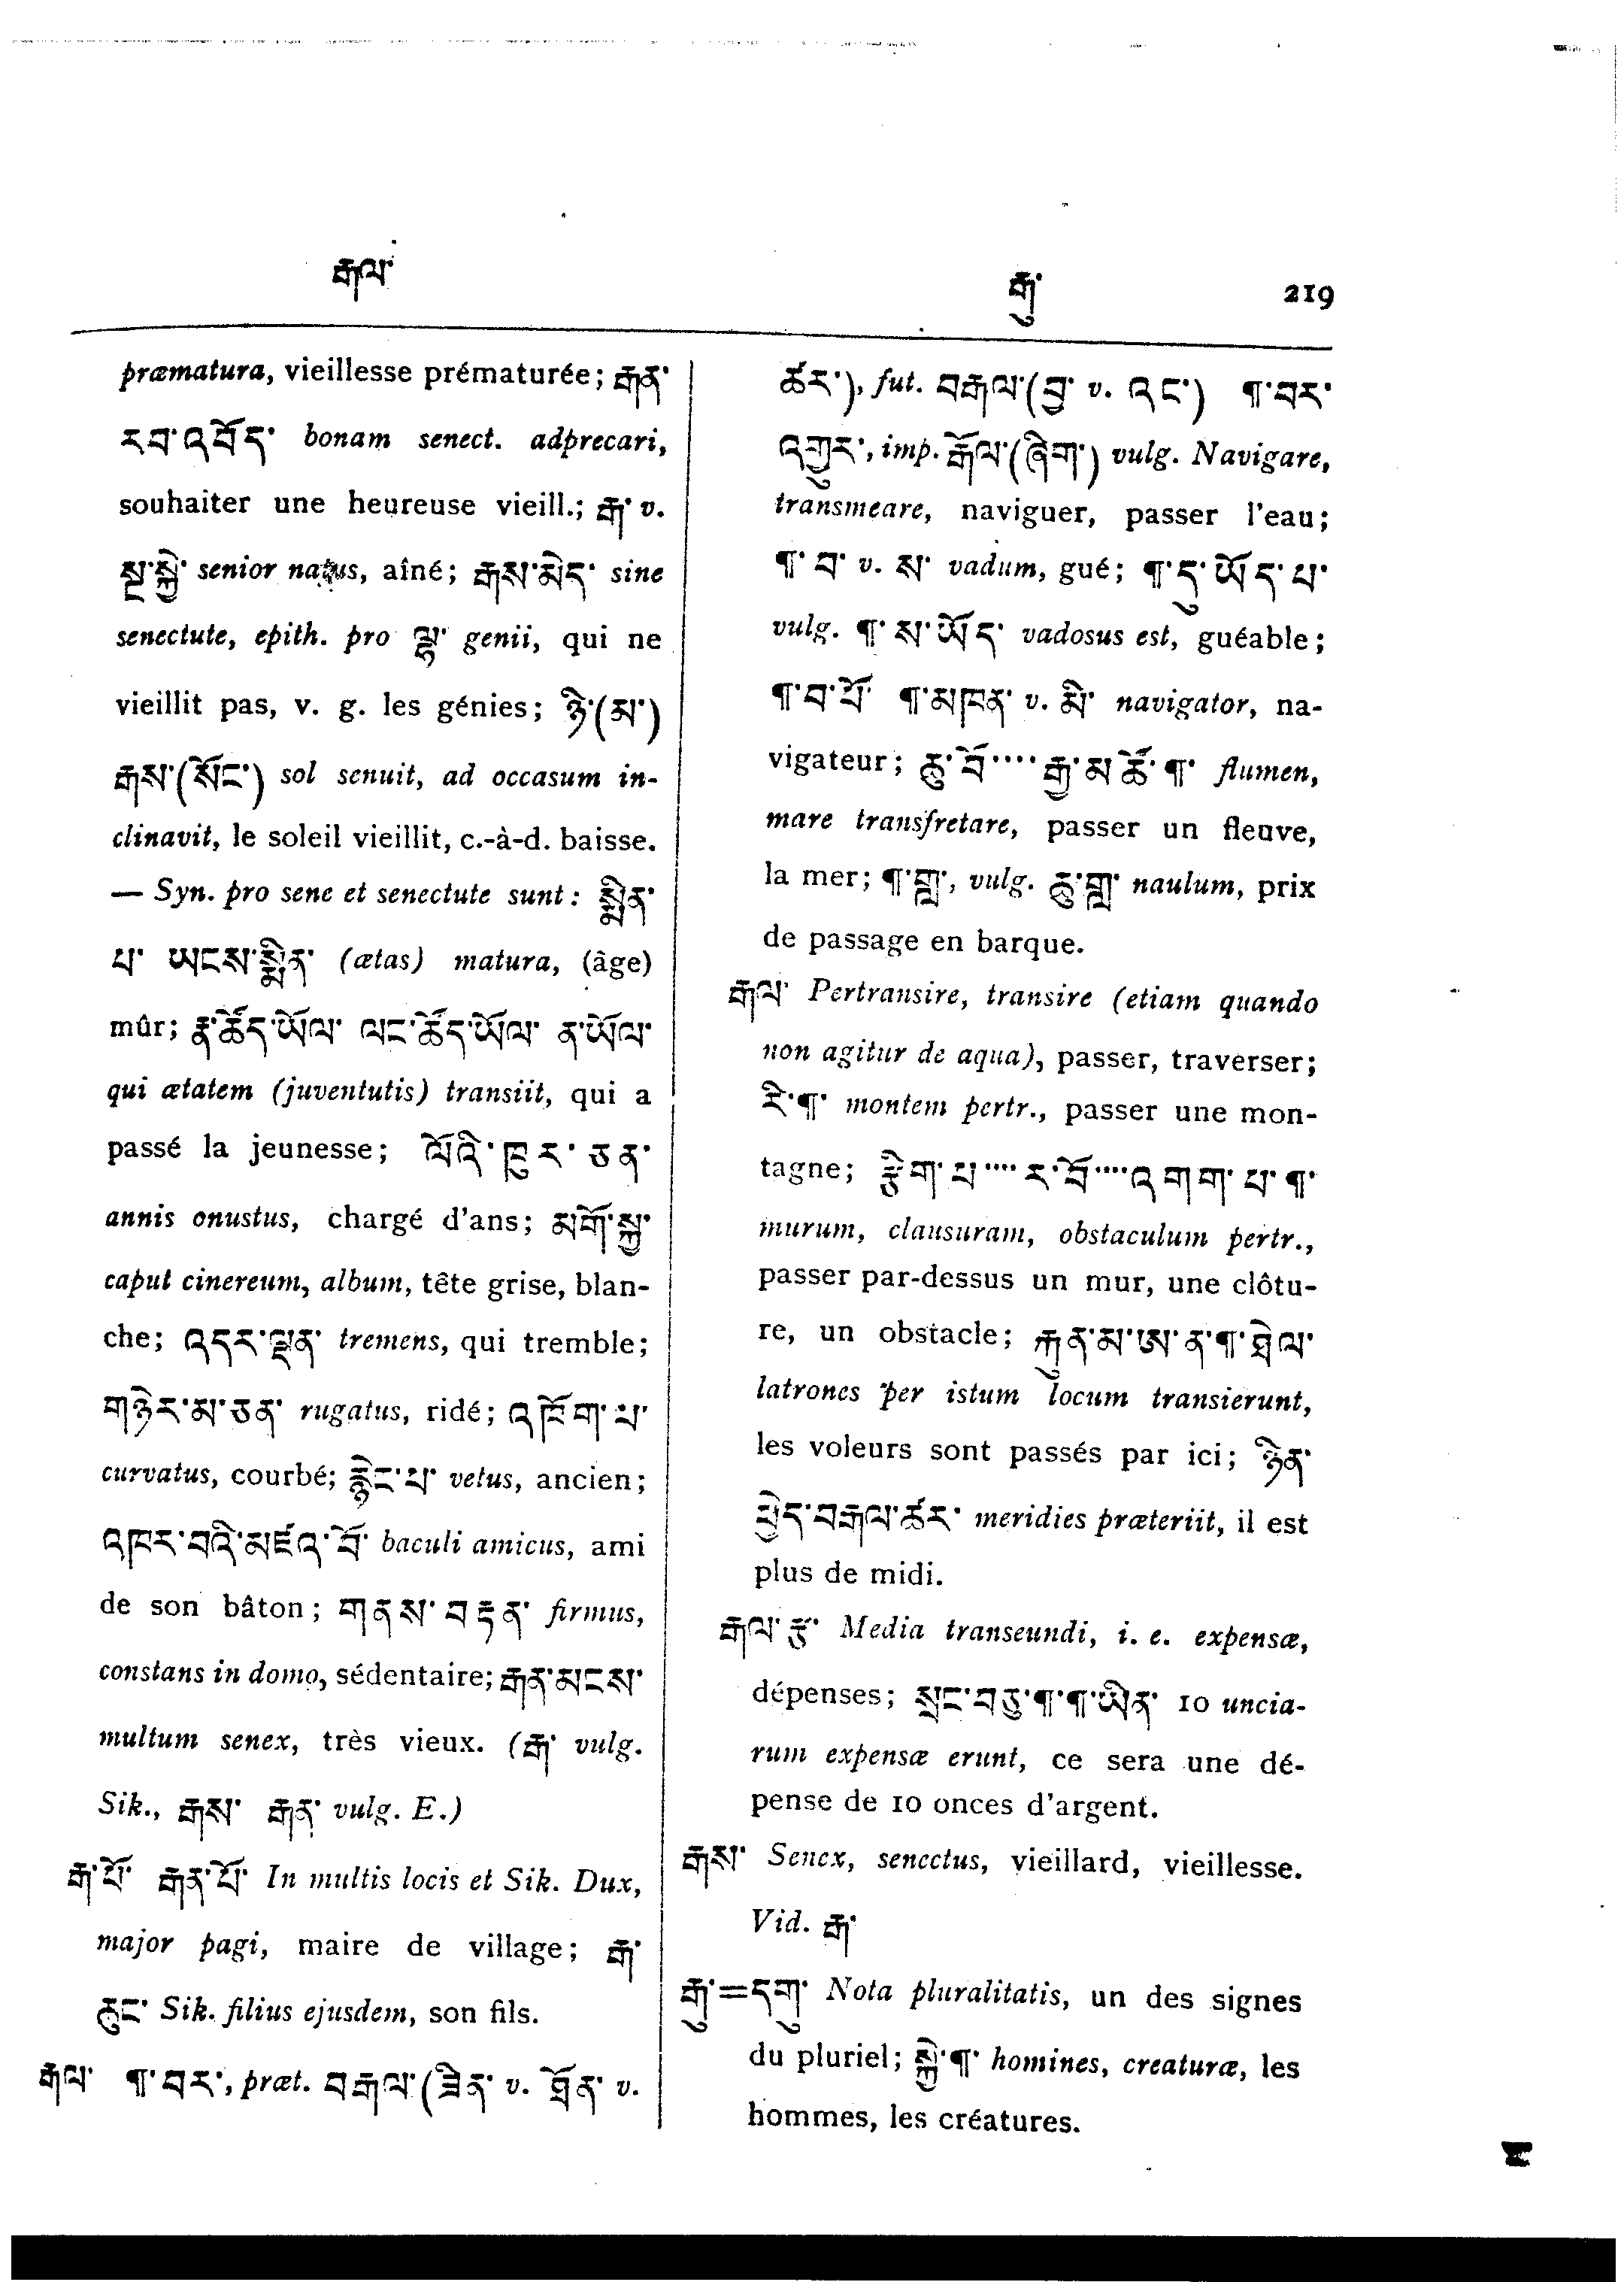 རྒལ་
རྒུ་ 219
præmatura, vieillesse prématurée; རྒན་
རབ་འབོད་ bonam senect. adprecari,
souhaiter une heureuse vieill.; རྒ་ v.
སྔ་སྐྱེ་ senior natus, aîné; རྒས་མེད་ sine
senectute, epith. pro ལྷ་ genii, qui ne
vieillit pas, v. g. les génies; ཉི་(མ་)
རྒས་(སོང་) sol senuit, ad occasum in-
clinavit, le soleil vieillit, c.-à-d. baisse.
— Syn. pro sene et senectute sunt: སྨིན་
པ་ ཡངས་སྨིན་ (ætas) matura, (âge)
mûr; ན་ཚོད་ཡོལ་ ལང་ཚོད་ཡོལ་ ན་ཡོལ་
qui ætatem (juventutis) transiit, qui a
passé la jeunesse; ལོའི་ཁུར་ཅན་
annis onustus, chargé d'ans; མགོ་སྐྱ་
caput cinereum, album, tête grise, blan-
che; འདར་ལྡན་ tremens, qui tremble;
གཉེར་མ་ཅན་ rugatus, ridé; འཁོག་པ་
curvatus, courbé; རྙིང་པ་ vetus, ancien;
འཁར་བའི་མཛའ་བོ་ baculi amicus, ami
de son bâton; གནས་བརྟན་ firmus,
constans in domo, sédentaire; རྒན་མངས་
multum senex, très vieux. (རྒ་ vulg.
Sik., རྒས་ རྒན་ vulg. E.)
རྒ་པོ་ རྒན་པོ་ In multis locis et Sik. Dux,
major pagi, maire de village; རྒ་
ཆུང་ Sik. filius ejusdem, son fils.
རྒལ་ ¶་བར་, præt. བརྒལ་(ཟིན་ v. ཐོན་ v.
ཚར་), fut. བརྒལ་(བྱ་ v. འང་) ¶་བར་
འགྱུར་, imp. རྒོལ་(ཞིག་) vulg. Navigare,
transmeare, naviguer, passer l'eau;
¶་བ་ v. ས་ vadum, gué; ¶་དུ་ཡོད་པ་
vulg. ¶་ས་ཡོད་ vadosus est, guéable;
¶་བ་པོ་ ¶་མཁན་ v. མི་ navigator, na-
vigateur; ཆུ་བོ་···· རྒྱ་མཚོ་¶་ flumen,
mare transfretare, passer un fleuve,
la mer; ¶་གླ་, vulg. ཆུ་གླ་ naulum, prix
de passage en barque.
རྒལ་ Pertransire, transire (etiam quando
non agitur de aqua), passer, traverser;
རི་¶་ montem pertr., passer une mon-
tagne; རྩིག་པ་···· ར་བོ་····འགག་པ་¶་
murum, clausuram, obstaculum pertr.,
passer par-dessus un mur, une clôtu-
re, un obstacle; རྐུན་མ་ཨ་ན་¶་ཐལ་
latrones per istum locum transierunt,
les voleurs sont passés par ici; ཉིན་
ཕྱེད་བརྒལ་ཚར་ meridies præteriit, il est
plus de midi.
རྒལ་རྩ་ Media transeundi, i. e. expensæ,
dépenses; སྲང་བཅུ་¶་¶་ཡིན་ 10 uncia-
rum expensæ erunt, ce sera une dé-
pense de 10 onces d'argent.
རྒས་ Senex, senectus, vieillard, vieillesse.
Vid. རྒ་
རྒུ་=དགུ་ Nota pluralitatis, un des signes
du pluriel; སྐྱེ་¶་ homines, creaturæ, les
hommes, les créatures.